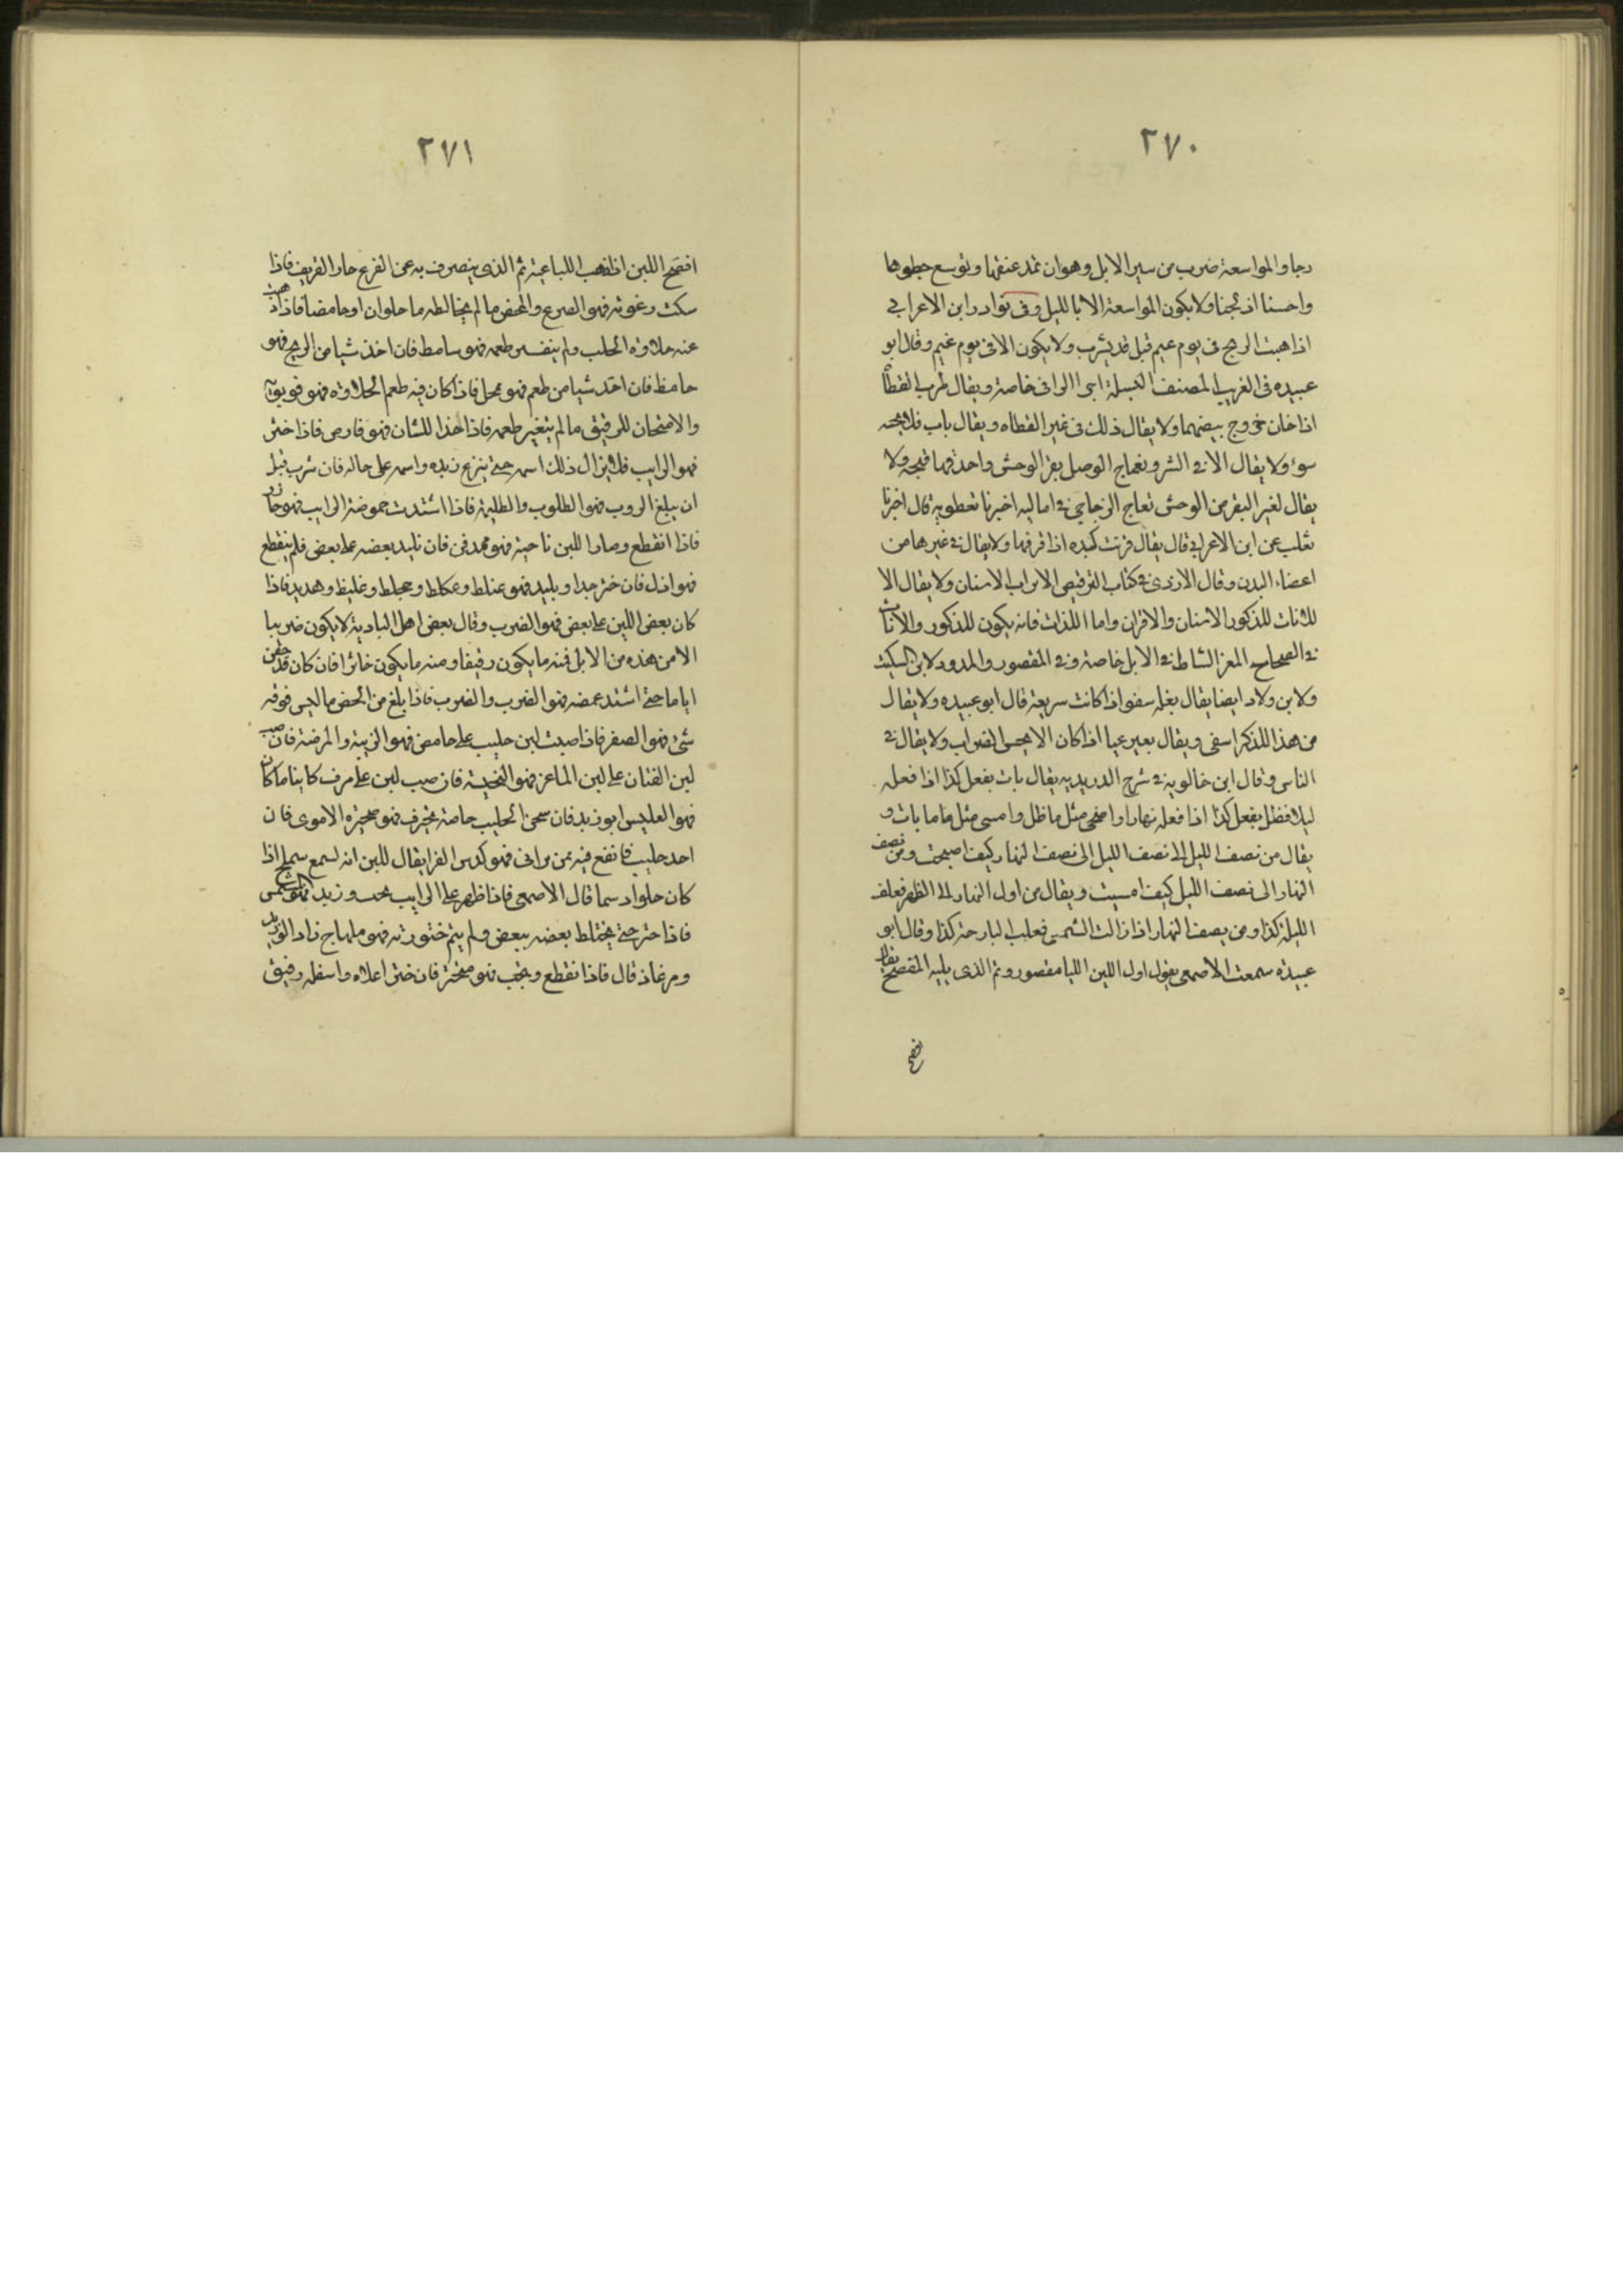 ٢٧٠
رجا والمواسعة ضرب من سير الابل وهو ان تمد عنقها وتوسع خطوها
واحسنا اذ لجنا ولا يكون المواسعة الا بالليل وفي نوادر ابن الاعرابي
اذا هبت الريح في يوم غيم قيل قد يثرب ولا يكون الا في يوم غيم وقال ابو
عبيده في الغريب المصنف خاصة ويقال طرب القطا
اذا خان خروج بيضهما ولا يقال ذلك في غير القطاه ويقال باب فلا
سوء ولا يقال الا في الشر ونعاج الوصل بقر الوحش واحدتها نعجه ولا
يقال لغير البقر من الوحش نعاج الزجاجي في اماليه اخبرنا نفطويه قال اخبرنا
ثعلب عن ابن الاعرابي قال يقال فرتت كبده اذا فرقها ولا يقال في غيرها من
اعضاء البدن وقال الازدي في كتاب الترقيص الاتراب الاسنان ولا يقال الا
للاناث للذكور الاسنان والاقران واما اللذات فانه يكون للذكور والاناث
في الصحاح المعز النشاط في الابل خاصة وفي المقصور والمدود لابن السكيت
ولابن ولاد ايضا يقال بغله سفوا اذا كانت سريعة قال ابو عبيده ولا يقال
من هذا للذكر اسفى ويقال بعير عيا اذا كان لا يحس الضراب ولا يقال في
الناس وقال ابن خالويه في شرح الدريديه يقال بات يفعل كذا اذا فعله
ليلا فظل يفعل كذا اذا فعله نهارا واضحى مثل ما ظل وامسى مثل ما بات و
يقال من نصف الليل الى نصف الليل الى نصف النهار كيف اصبحت ومن نصف
النهار الى نصف الليل كيف امسيت ويقال من اول النهار الى الظهر فعلت
الليلة كذا ومن نصف النهار اذا زالت الشمس فعلت البارحة كذا وقال ابو
عبيده سمعت الاصمعي يقول اول اللبن اللبا مقصور وثم الذي يليه المفصح يقال
افصح
٢٧١
افصح اللبن اذا ذهب اللبا عنه ثم الذي ينصرف به عن الضرع حار الصريف فاذا
سكت رغوته فهو الصريح والمحض ما لم يخالطه ما حلوا كان او حامضا فاذا ذهب
عنه حلاوة الحلب ولم يتغير طعمه فهو سامط فان اخذ شيا من الريح فهو
خامط فان اخذ شيا من طعم فهو ممحل فاذا كان فيه طعم الحلاوة فهو قويهة
والامتحان للرقيق ما لم يتغير طعمه فاذا احذا اللسان فهو قارص فاذا خثر
فهو الرايب فلا يزال ذلك اسمه حتى ينزع زبده واسمه على حاله فان شرب قبل
ان يبلغ الروب فهو المظلوم والظليمة فاذا اشتدت حموضة الرايب فهو حازر
فاذا انقطع وصار اللبن ناحية فهو ممذقر فان تلبد بعضه على بعض فلم ينقطع
فهو ادل فان خثر جدا وتلبد فهو عثلط وعكلط وعجلط وغليظ وهديد فاذا
كان بعض اللبن على بعض فهو الضرب وقال بعض اهل البادية لا يكون ضريبا
الا من عده من الابل فمنه ما يكون رقيقا ومنه ما يكون خاثرا فان كان قد حقن
اياما حتى اشتد حمضه فهو الضرب والضرب فاذا بلغ من الحمض ما ليس فوقه
شئ فهو الصقر فاذا صب لبن حليب على حامض فهو الرثية والمرضة فان صب
لبن الضان على لبن الماعز فهو النخيسة فان صب لبن على مرق كاينا ما كان
فهو العكيس ابو زيد فان سخن الحليب خاصة حتى يحترق فهو صحيرة الاموي فان
اخذ حليب فانقع فيه تمر برني فهو كديرا الفرا يقال للبن انه لسمهج سملج اذا
كان حلوا دسما قال الاصمعي فاذا ظهر على الرايب تحبب وزبد فهو المثمر
فاذا خثر حتى يختلط بعضه ببعض ولم يتم خثورته فهو ملهاج زاد ابو زيد
ومرغاد قال فاذا تقطع وتحبب فهو مبحثر فان خثر اعلاه واسفله رقيق